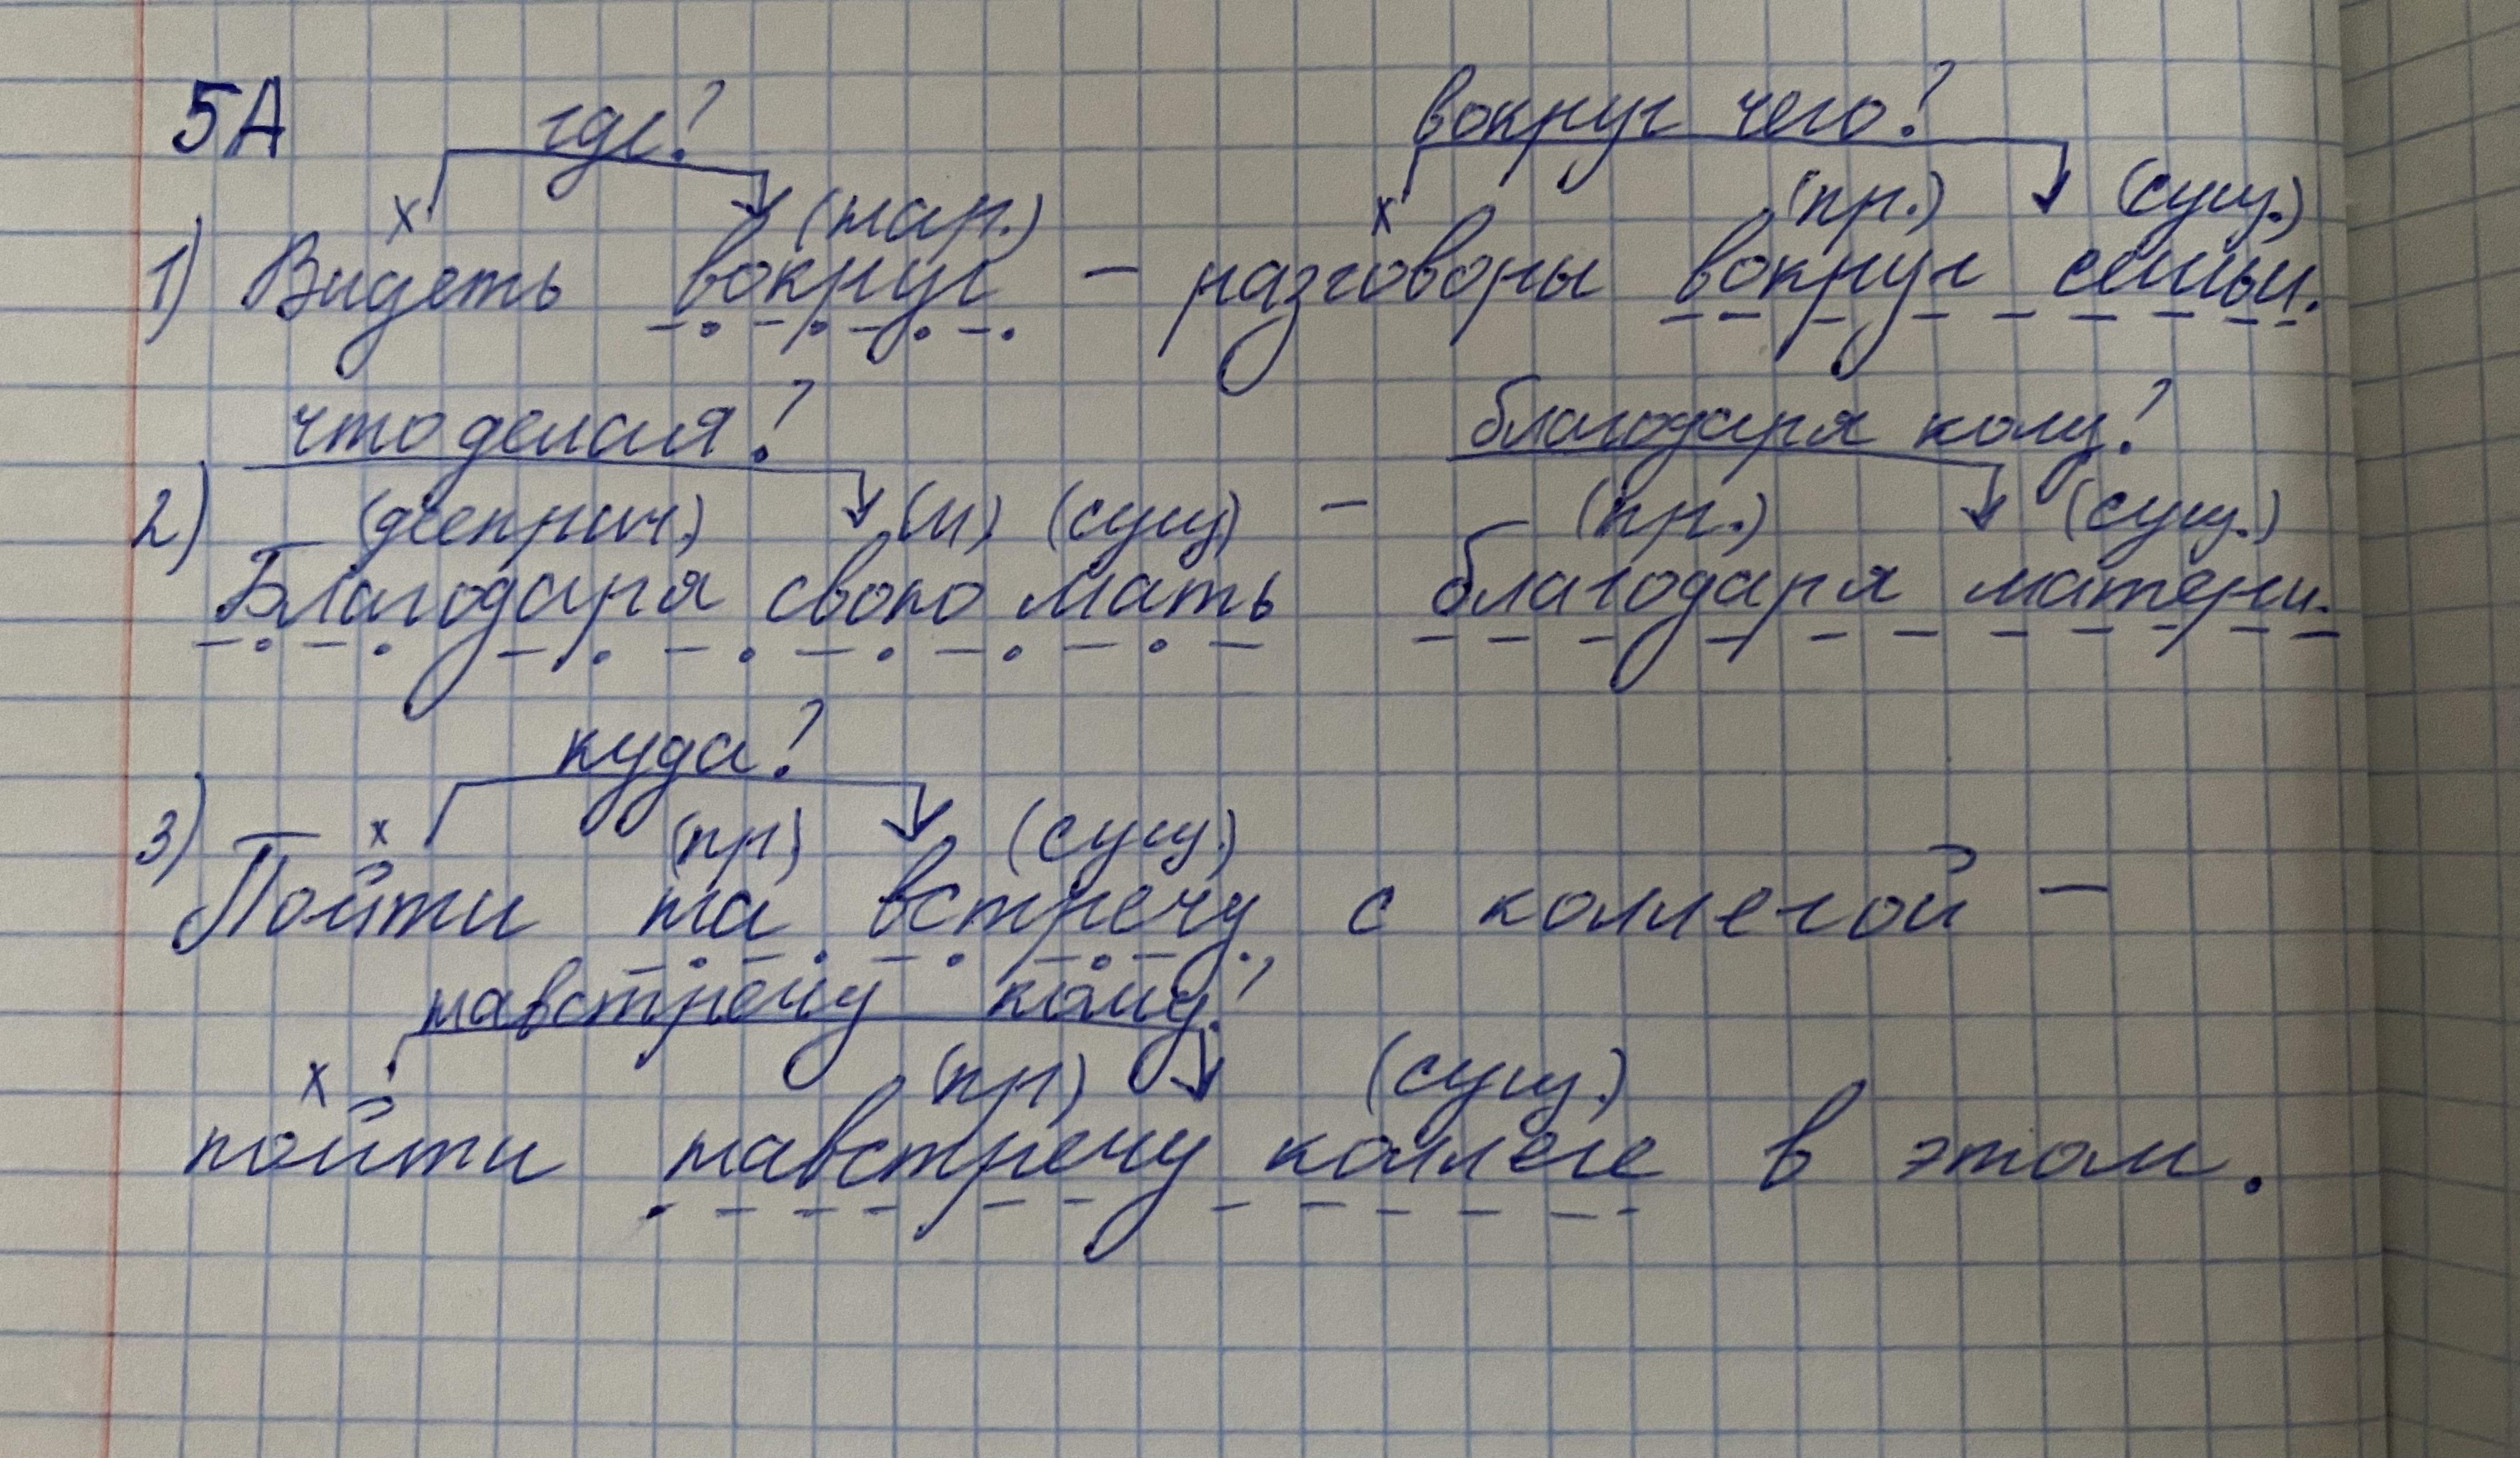 5А где? вокруг чего?
х (нар.) х (пр.) (сущ.)
1) Видеть вокруг – разговоры вокруг семьи.
что делая? благодаря кому?
2) (дееприч.) (м) (сущ) – (пр.) (сущ.)
Благодаря свою мать благодаря матери.
куда?
3) х (пр) (сущ.)
Пойти на встречу с коллегой –
навстречу кому?
х (пр) (сущ.)
пойти навстречу коллеге в этом.